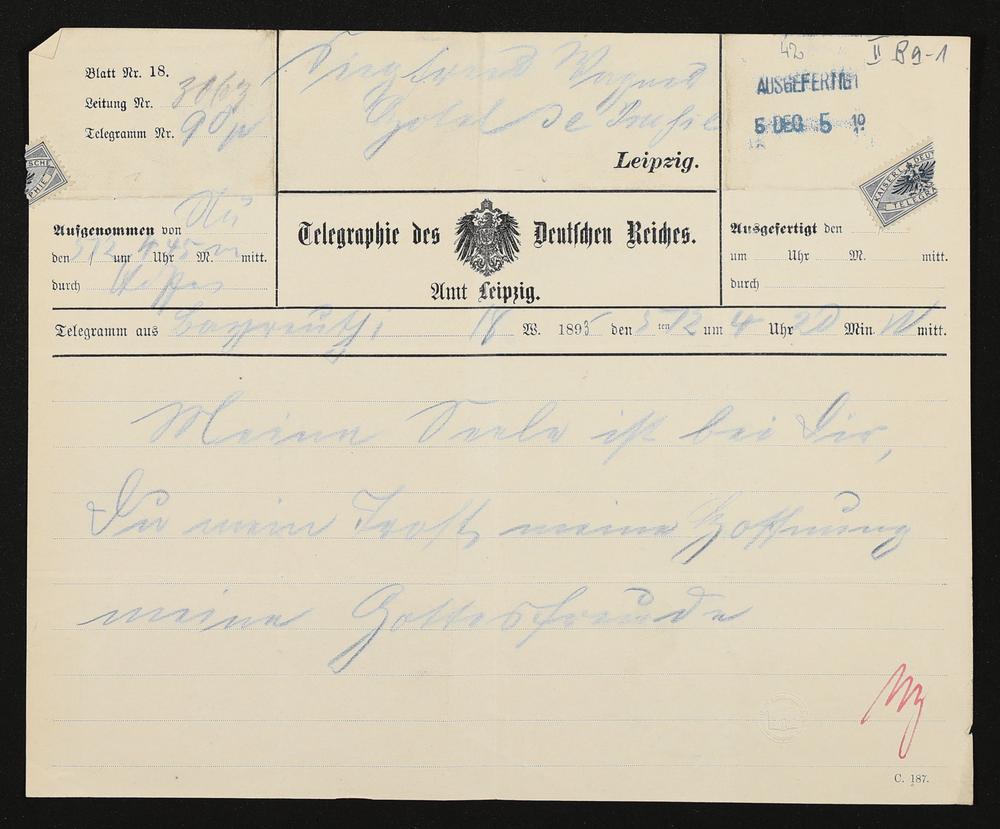 42
II B9-1
Blatt Nr. 18.
Leitung Nr. 3063
Telegramm Nr. 90
Siegfried Wagner
Hotel de Prusse
Leipzig.
AUSGEFERTIGT
5 DEC 5 10
KAISERL. DEUT
TELEGRA
Aufgenommen von
den 5/12 um 4 45 Uhr M. mitt.
durch
Telegraphie des Deutschen Reiches.
Amt Leipzig.
Ausgefertigt den
um Uhr M. mitt.
durch
Telegramm aus Bayreuth 18 W. 1895 den 5 ten 12 um 4 Uhr 20 Min. N mitt.
Meine Seele ist bei Dir,
Du mein Trost, meine Hoffnung
meine Gottesfreude
C. 187.